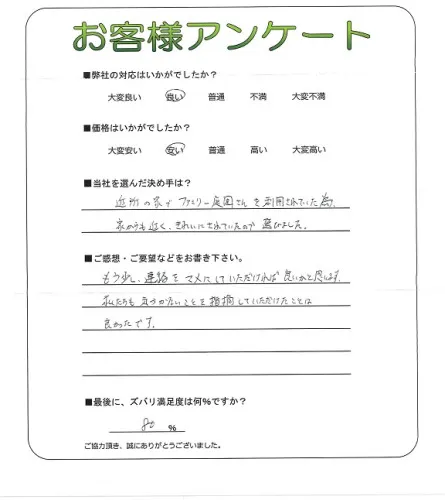 お客様アンケート
■弊社の対応はいかがでしたか？
大変良い　良い　普通　不満　大変不満
■価格はいかがでしたか？
大変安い　安い　普通　高い　大変高い
■当社を選んだ決め手は？
近所の家がファミリー庭園さんを利用されていた為、
家からも近く、きれいにされていたので選びました。
■ご感想・ご要望などをお書き下さい。
もう少し、連絡をマメにしていただければ良いかと思います。
私たちも気付かないことを指摘していただけたことは
良かったです。
■最後に、ズバリ満足度は何％ですか？
80 ％
ご協力頂き、誠にありがとうございました。